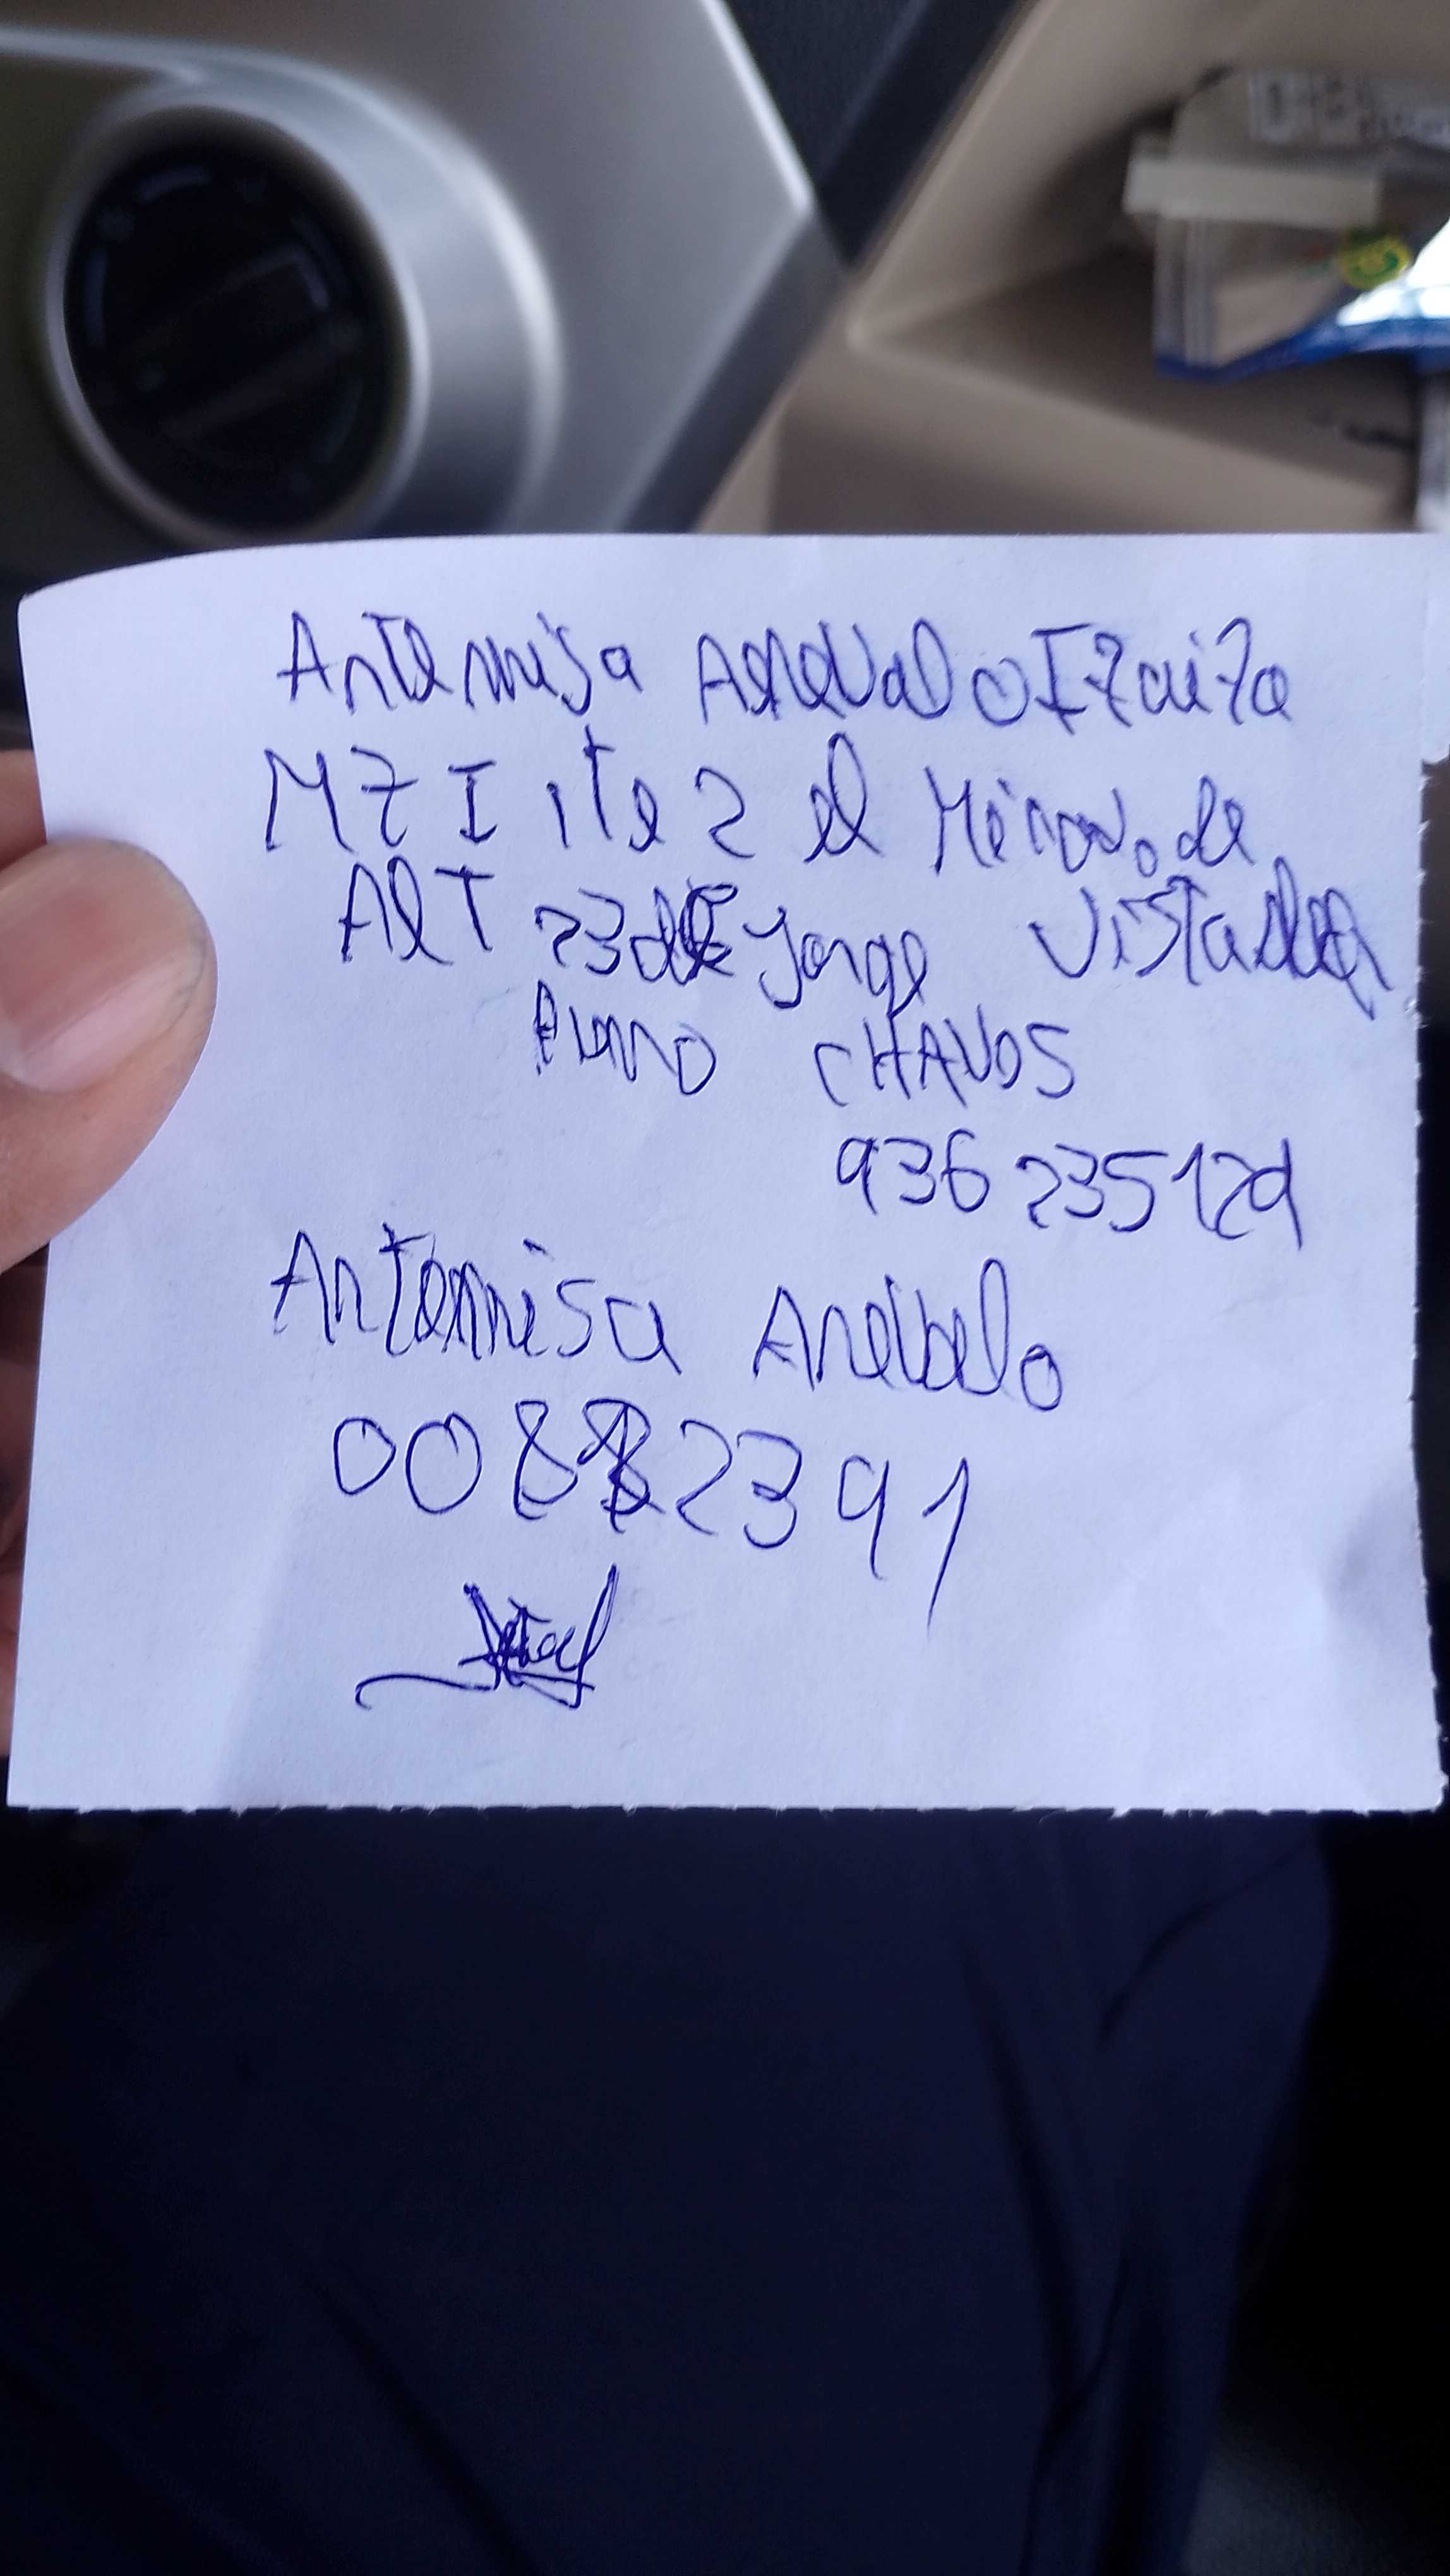 Artemisa Arevalo Izuiza
MZ I lte 2 el Mirado de
Alt 23 de Jorge Vista
CHAVOS
936 235129
Artemisa Arevalo
00882391